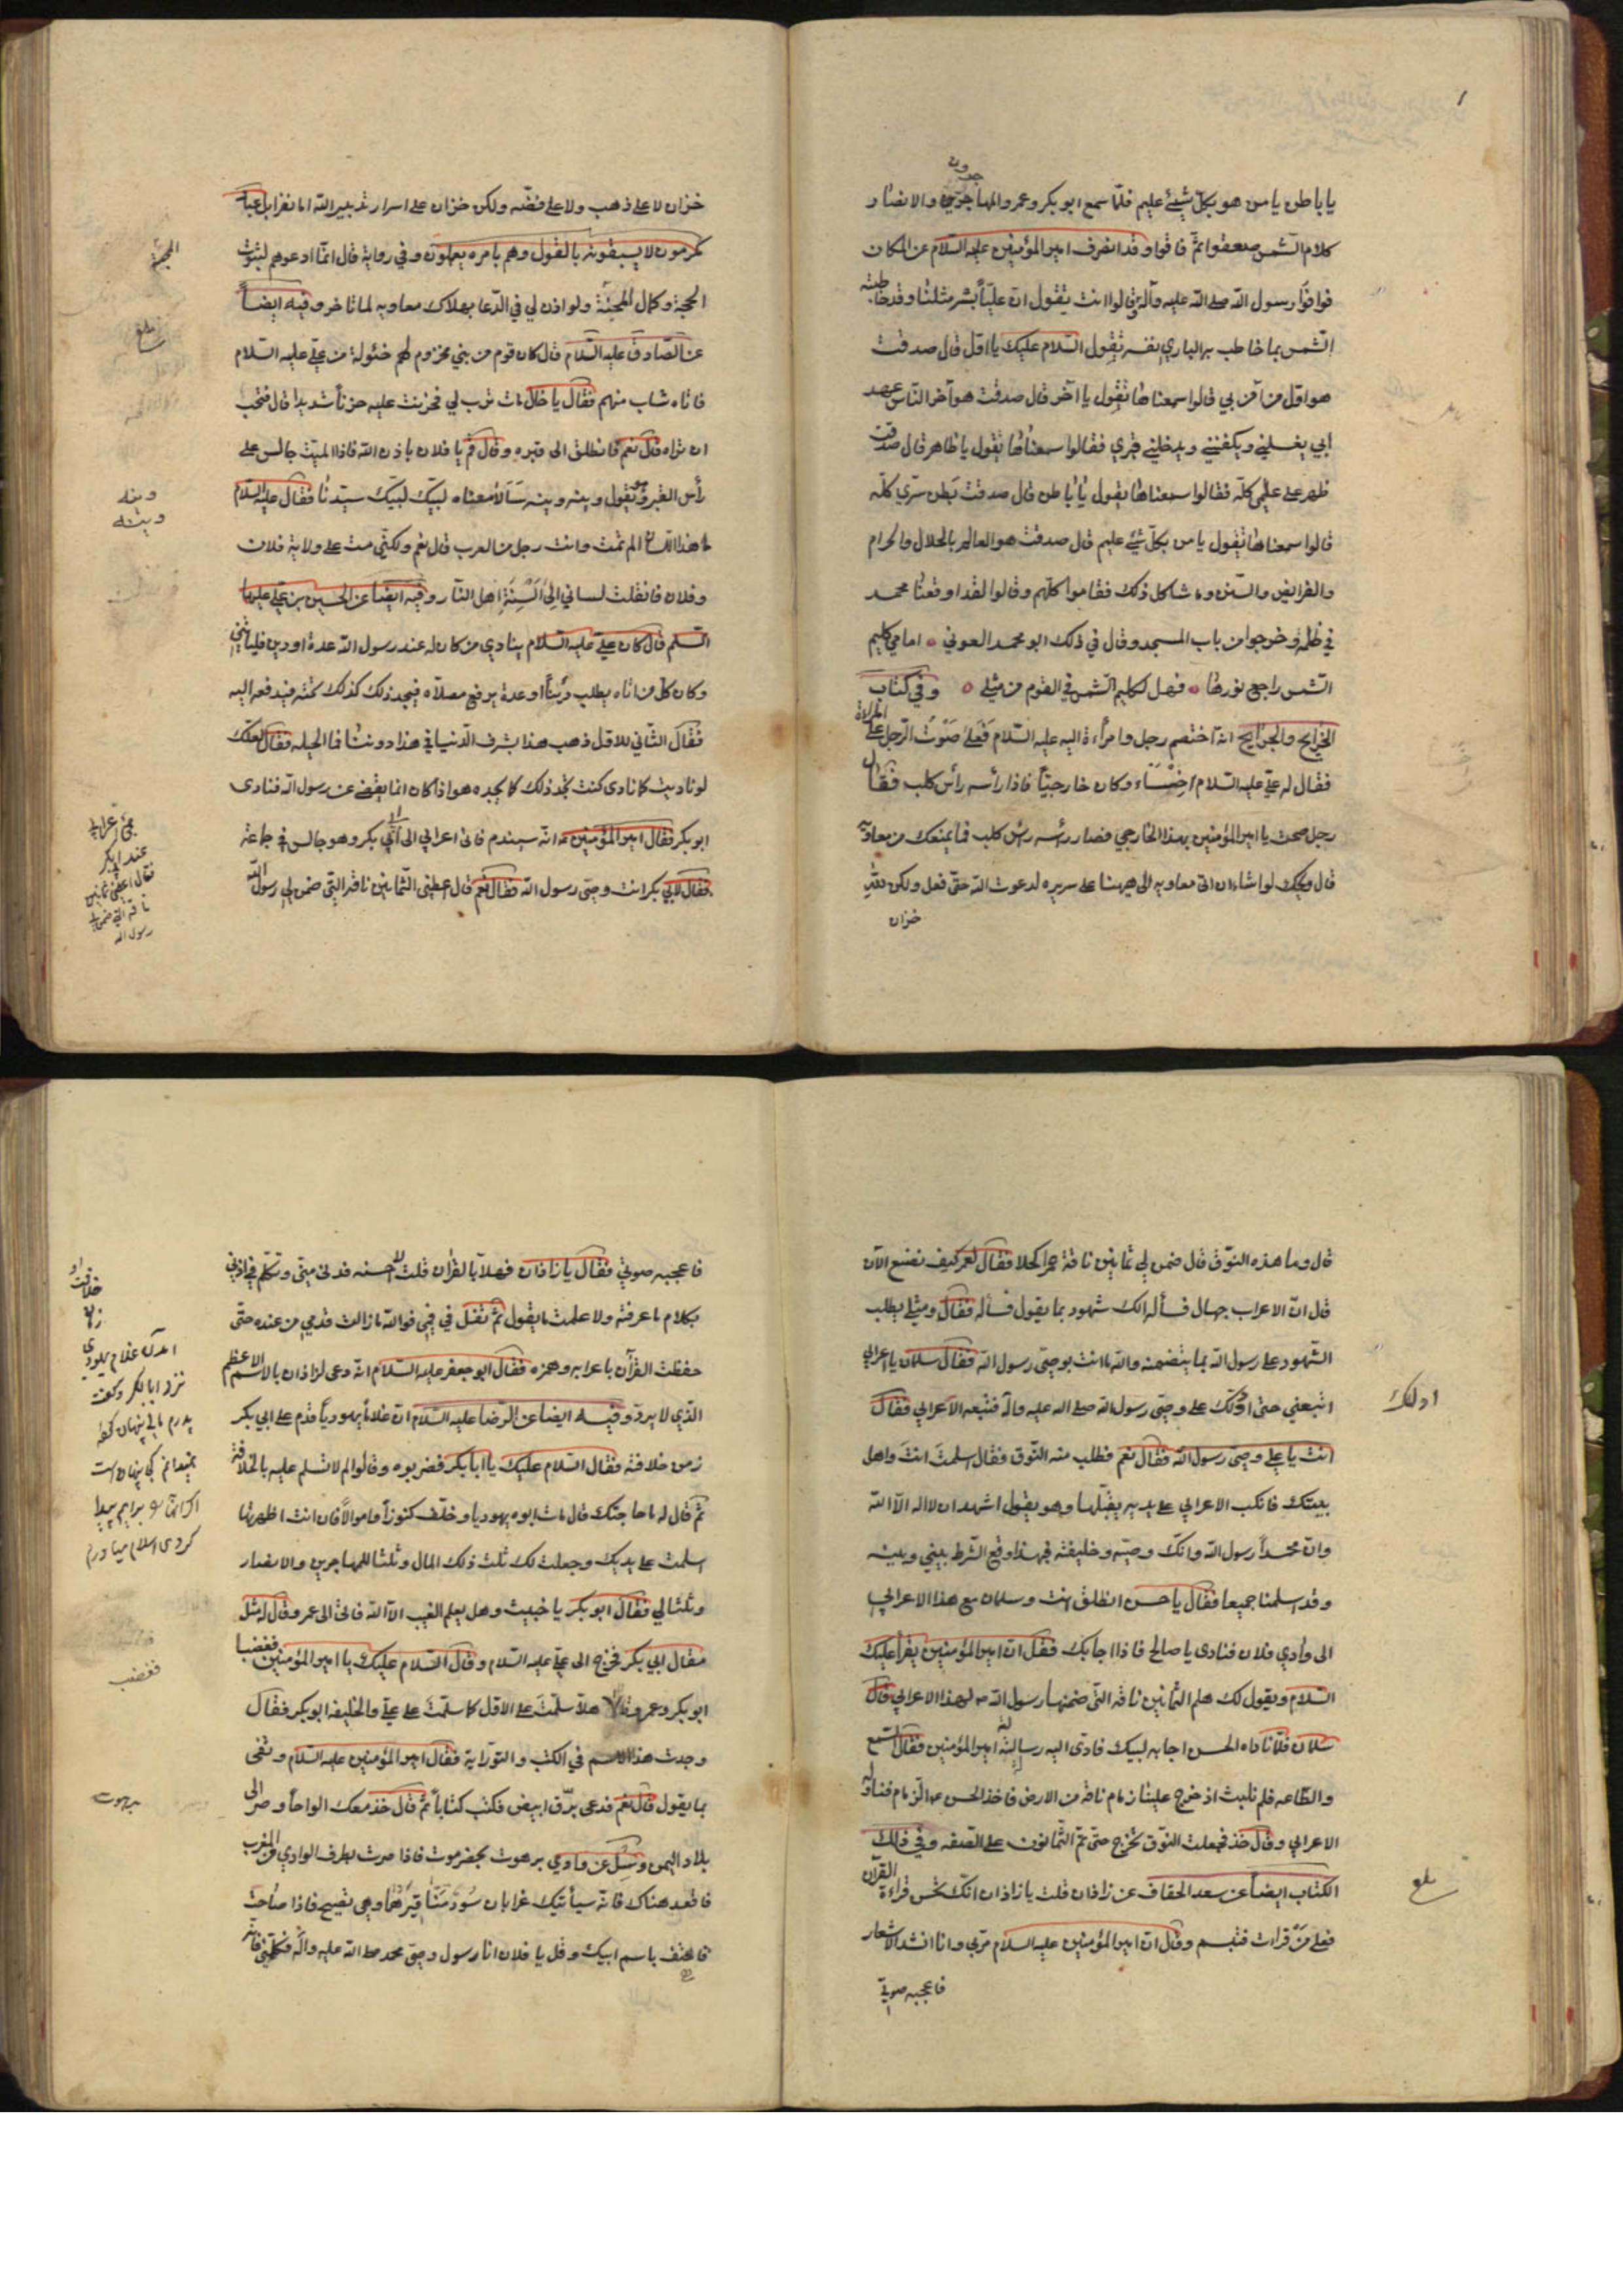 يا باطن يا من هو بكلّ شيئ عليم فلمّا سمع ابو بكر وعمر والمهاجرون والانصار
كلام الشمس صعقوا ثمّ فاقوا وقد انصرف امير المؤمنين عليه السّلام عن المكان
فوافوا رسول الله صلى الله عليه وآله وقالوا انت تقول انّ عليّاً بشر مثلنا وقد خاطبته
الشمس بما خاطب به الباري نفسه تقول السّلام عليك يا اوّل قال صدقت
هو اوّل من آمن بي قالوا سمعناها تقول يا آخر قال صدقت هو آخر النّاس عهد
ابي يغسلني ويكفنني ويدخلني قبري فقالوا سمعناها تقول يا ظاهر قال صدقت
ظهر على علمي كلّه فقالوا سمعناها تقول يا باطن قال صدقت بطن سرّي كلّه
قالوا سمعناها تقول يا من بكلّ شيئ عليم قال صدقت هو العالم بالحلال والحرام
والفرايض والسّنن وما شاكل ذلك فقاموا كلّهم وقالوا لقد اوقعنا محمد
في ظلمة وخرجوا من باب المسجد وقال في ذلك ابو محمد العوني امامي كليم
الشمس راجع نورها فهل لكليم الشمس في القوم من مثلي وفي كتاب
الخرايج والجرايح انّه اختصم رجل وامرأة اليه عليه السّلام فعلى صَوْت الرّجل على المراة
فقال له علي عليه السّلام اخسَأ وكان خارجيّاً فاذا رأسه رأس كلب فقال
رجل صحت يا امير المؤمنين بهذا الخارجي فصار رأسه رأس كلب فما يمنعك من معاوية
قال ويحك لو اشاء ان اتى معاويه الى هيهنا على سريره لدعوت الله حتى فعل ولكن لله
خزان
خزان لا على ذهب ولا على فضّه ولكن خزان على اسرار تدبير الله اما تقرا بل عباد
مكرمون لا يسبقونه بالقول وهم بامره يعملون وفي رواية قال انّما ادعوهم لثبوت
الحجّة وكمال المحنة ولو اذن لي في الدّعا بهلاك معاويه لما تاخر وفيه ايضاً
عن الصّادق عليه السّلام قال كان قوم من بني مخزوم لهم خئولة من علي عليه السّلام
فاتاه شاب منهم فقال يا خال مات ترب لي فحزنت عليه حزناً شديدا قال فتحب
ان تراه قال نعم فانطلق الى قبره وقال قم يا فلان باذن الله فاذا الميّت جالس على
رأس القبر وهو يقول وينه وينه سَآلا معناه لبيّك لبيّك سيّدنا فقال عليه السّلام
ما هذا اللسان الم تمت وانت رجل من العرب قال نعم ولكنّي مت على ولاية فلان
وفلان فانقلب لساني الى السنة اهل النّار وفيه ايضاً عن الحسين بن علي عليهما
السّلم قال كان علي عليه السّلام ينادي من كان له عند رسول الله عدة او دين فلياتني
وكان كل من اتاه يطلب دَيناً او عدة يرفع مصلاه فيجد ذلك كذلك تحته فيدفعه اليه
فقال الثاني للاوّل ذهب هذا بشرف الدّنيا في هذا دوننا فما الحيله فقال لعلّك
لو ناديت كما نادى كنت تجد ذلك كما يجده هو اذا كان انما يقضي عن رسول الله فنادى
ابو بكر فقال امير المؤمنين ع انّه سيندم فاتى اعرابي الى ابي بكر وهو جالس في جماعة
فقال لابي بكر انت وصّى رسول الله فقال نعم قال اعطني الثمانين ناقة التي ضمن لي رسول الله
الحجّة
بلغ
وينه
وينه
عند ابى بكر
فقال اعطني ثمانين
ناقة التي ضمن لي
رسول الله
قال وما هذه النّوق قال ضمن لي ثمانين ناقة حمر الكحلا فقال لعمر كيف نصنع الآن
قال انّ الاعراب جهال فسأله الك شهود بما يقول فسأله فقال ومثلي يطلب
الشّهود على رسول الله بما يتضمنه والله ما انت بوصّي رسول الله فقال سلمان يا اعرابي
اتبعني حتى ادلّك على وصّي رسول الله صلى الله عليه وآله فتبعه الاعرابي فقال
انت يا علي وصّي رسول الله فقال نعم فطلب منه النّوق فقال اسلمت انت واهل
بيتك فانكب الاعرابي على يديه يقبّلها وهو يقول اشهد ان لا اله الّا الله
وانّ محمّداً رسول الله وانّك وصيّه وخليفته فبهذا وقع الشّرط بيني وبينه
وقد اسلمنا جميعا فقال يا حسن انطلق انت وسلمان مع هذا الاعرابي
الى وادي فلان فنادى يا صالح فاذا اجابك فقل انّ امير المؤمنين يقرأ عليك
السّلام ويقول لك هلم الثمانين ناقه التّي ضمنها رسول الله ص لهذا الاعرابي قال
سلمان فلمّا ناداه الحسن اجابه لبيك فادى اليه رسالة امير المؤمنين فقال السّمع
والطّاعه فلم نلبث اذ خرج علينا زمام ناقة من الارض فاخذ الحسن ع الزمام فناوله
الاعرابي وقال خذ فجعلت النّوق تخرج حتى تمّ الثّمانون على الصّفه وفي ذلك
الكتاب ايضاً عن سعد الخفاف عن زاذان قلت يا زاذان انّك تحسن قراءة القرآن
فعلى مَنْ قرأت فتبسم وقال انّ امير المؤمنين عليه السلام مرّبي وانا انشد الاشعار
فاعجبه صوتي
ادلك
بلغ
فاعجبه صوتي فقال يا زاذان فهلّا بالقرآن قلت لا احسنه فدنى منّي وتكلّم في اذني
بكلام ما عرفته ولا علمت ما يقول ثمّ تفل في فمي فوالله ما زالت قدمي من عنده حتى
حفظت القرآن باعرابه وهمزه فقال ابو جعفر عليه السّلام انّه دعى لزاذان بالاسم الاعظم
الذّي لا يردّ وفيه ايضا عن الرّضا عليه السّلام انّ غلاماً يهودياً قدم على ابي بكر
زمن خلافته فقال السّلام عليك يا ابا بكر فضربوه وقالوا لم لا تسلم عليه بالخلافة
ثمّ قال له ما حاجتك قال مات ابوه يهوديا وخلّف كنوزاً واموالاً فان انت اظهرتها
اسلمت على يديك وجعلت لك ثلث ذلك المال وثلثا للمهاجرين والانصار
وثلثا لي فقال ابو بكر يا خبيث وهل يعلم الغيب الّا الله فاتى الى عمر وقال له مثل
مقال ابي بكر فخرج الى علي عليه السّلام وقال السّلام عليك يا امير المؤمنين فغضبا
ابو بكر وعمر وقالا هلّا سلّمت على الاوّل كما سلّمت على علي والخليفه ابو بكر فقال
وجدت هذا الاسم في الكتب والتوراية فقال امير المؤمنين عليه السّلام وتفى
بما يقول قال نعم فدعى برّق ابيض فكتب كتاباً ثمّ قال خذ معك الواحاً وصر الى
بلاد اليمن وسئل عن وادي برهوت بحضرموت فاذا صرت بطرف الوادي من المغرب
فاقعد هناك فانّه سيأتيك غرابان سُود مناقيرها وهي تصيح فاذا صاحت
فاهتف باسم ابيك وقل يا فلان انا رسول وصّى محمد صلى الله عليه وآله فكلّمني فانّه
خلافت او
آمدن غلام يهودي
نزد ابا بكر وكفت
پدرم مالى پنهان كرده
نميدانم كجا پنهان است
كردى اسلام مياورم
فغضب
برهوت